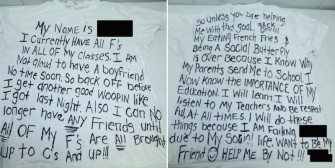 My NAME IS
I CURRENTLY HAVE All F's
IN ALL OF My CLASSES. I AM
Not aloud to have a boyfriend
No time Soon. So back off BEFORE
I get another good Woopin like
I got last Night. Also I can No
longer have ANY Friends until
All OF My F's Are All BROUGHT
Up to C's And up!!!
So Unless you are helping
Me With this goal
My EAting French Fries &
Being A Social Butterfly
is Over Because I Know Why
My Parents Send Me to School. I
Now Know the IMPORTANCE OF My
Education. I will Learn I will
listen to My Teachers And Be respect
ful At All times. I Will do these
things because I Am FAiling
due to My Social Life. Want to Be My
Friend HELP Me By Not !!!